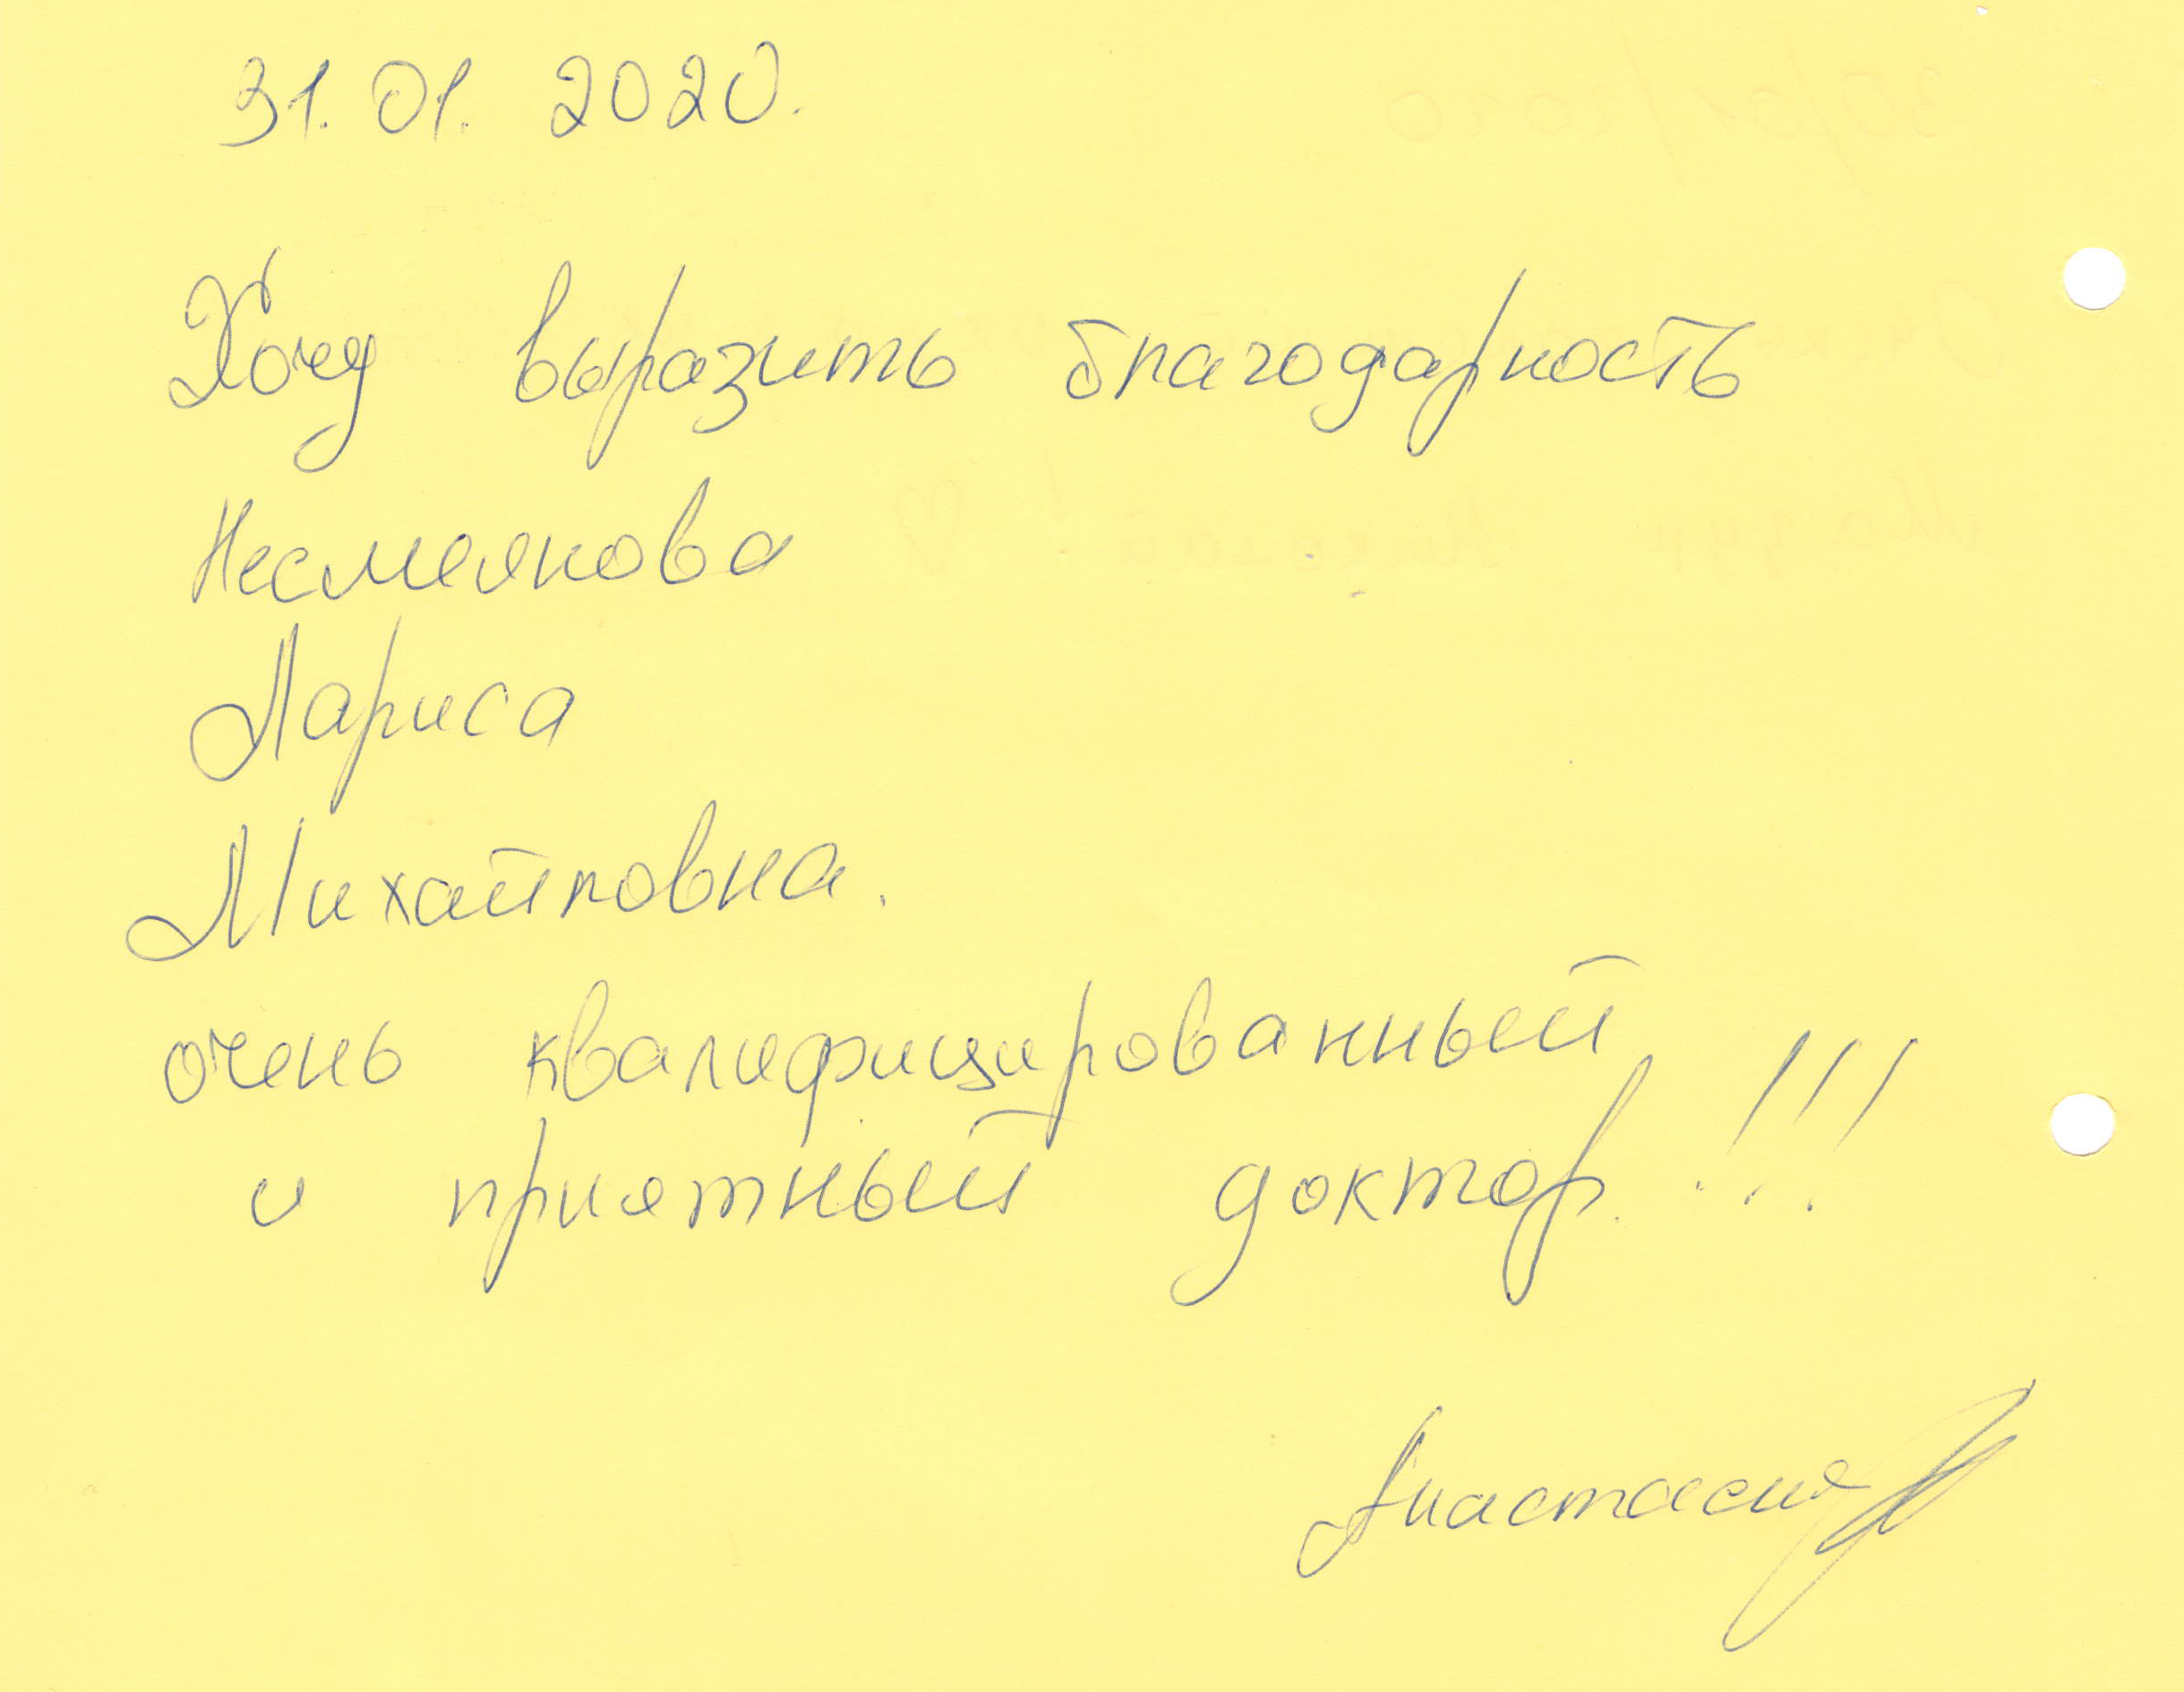 31.01.2020.
Хочу выразить благодарность
Несмеянова
Лариса
Михайловна.
очень квалифицированный
и приятный доктор!!!
Анастасия